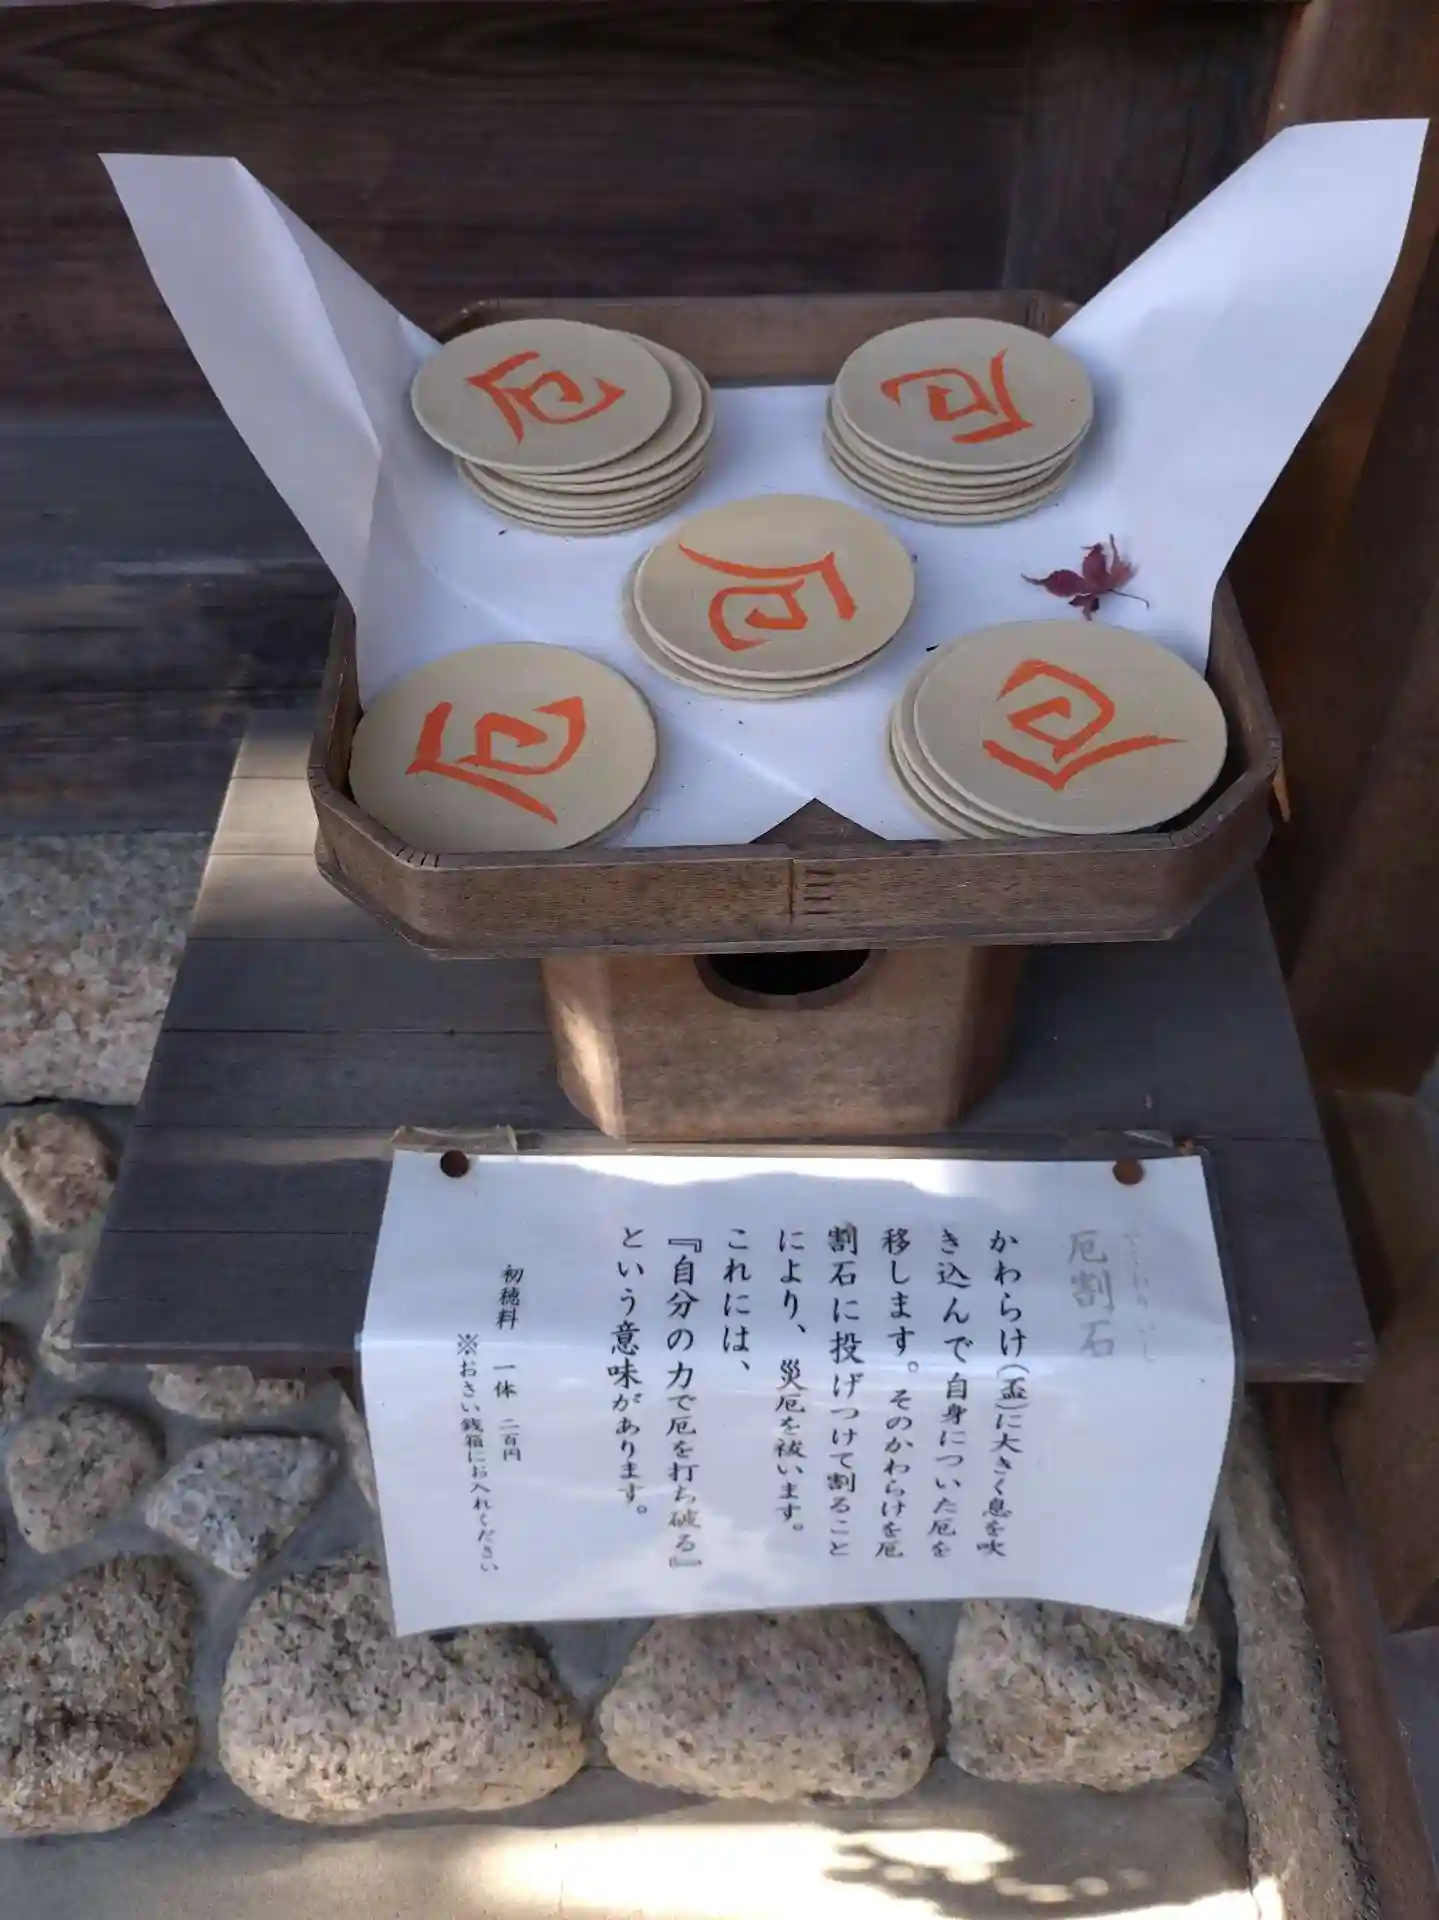 厄
厄
厄
厄
厄
厄割石
かわらけ(盃)に大きく息を吹
き込んで自身についた厄を
移します。そのかわらけを厄
割石に投げつけて割ること
により、災厄を祓います。
これには、
『自分の力で厄を打ち破る』
という意味があります。
初穂料 一体 二百円
※おさい銭箱にお入れください